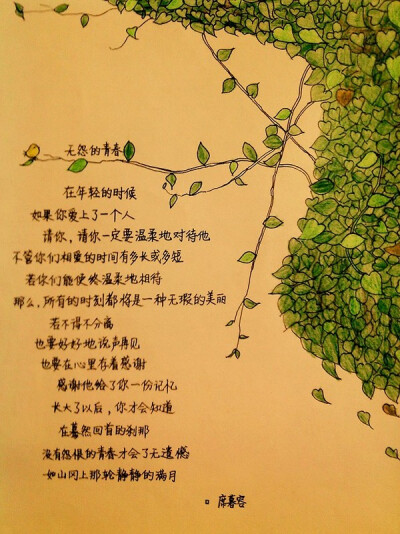 无怨的青春
在年轻的时候
如果你爱上了一个人
请你，请你一定要温柔地对待他
不管你们相爱的时间有多长或多短
若你们能始终温柔地相待
那么，所有的时刻都将是一种无瑕的美丽
若不得不分离
也要好好地说声再见
也要在心里存着感谢
感谢他给了你一份记忆
长大了以后，你才会知道
在蓦然回首的刹那
没有怨恨的青春才会了无遗憾
如山冈上那轮静静的满月
席慕容